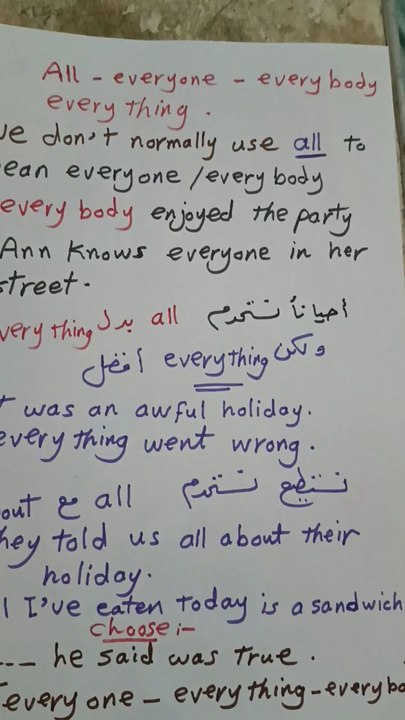 All - everyone - every body
every thing .
ve don't normally use all to
ean everyone / every body
every body enjoyed the party
Ann knows everyone in her
street.
أحياناً نستخدم all بدل very thing
ولكن everything أفضل
t was an awful holiday.
every thing went wrong.
نستطيع نستخدم all مع out
hey told us all about their
holiday.
l I've eaten today is a sandwich
choose :-
--- he said was true .
every one - every thing - every bo